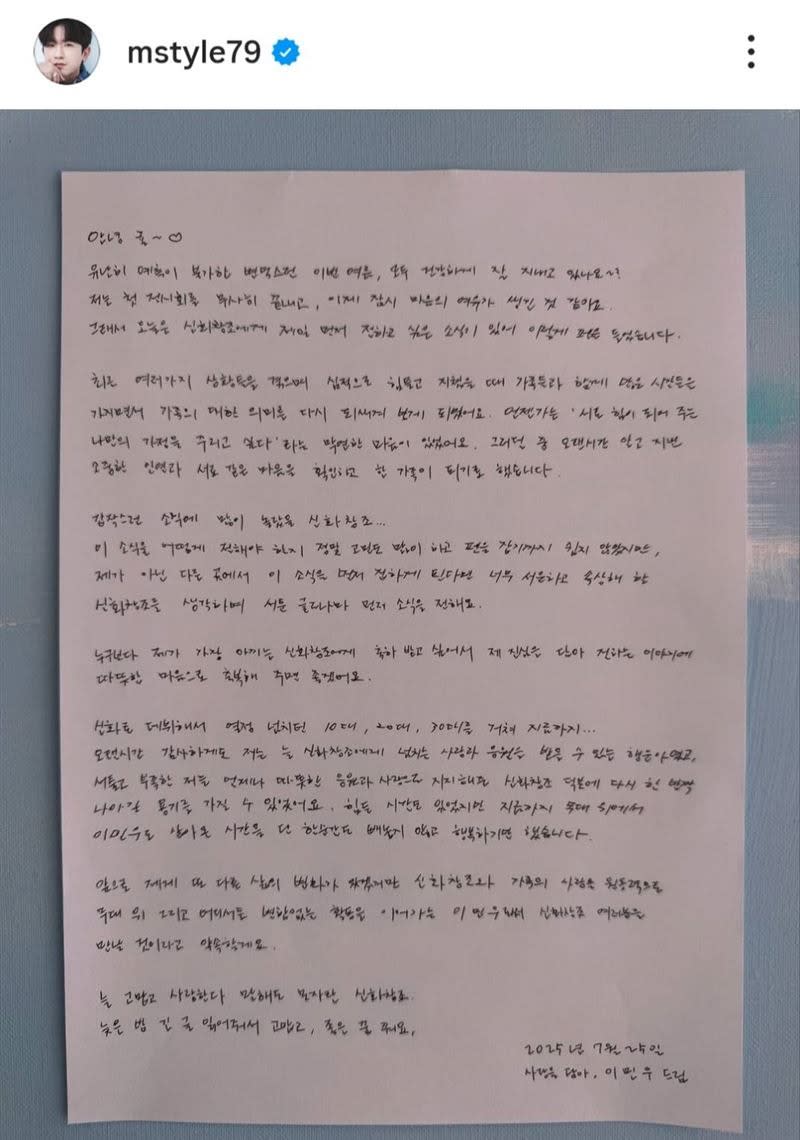 mstyle79
안녕 귤~♡
유난히 예측이 불가한 변덕스런 이번 여름, 모두 건강하게 잘 지내고 있나요~?
저는 첫 전시회를 무사히 끝내고, 이제 잠시 마음의 여유가 생긴 것 같아요.
그래서 오늘은 신화창조에게 제일 먼저 전하고 싶은 소식이 있어 이렇게 펜을 들었습니다.
최근 여러가지 상황들을 겪으며 심적으로 힘들고 지쳤을 때 가족들과 함께 많은 시간들을
가지면서 가족의 대한 의미를 다시 되새겨 보게 되었어요. 언젠가는 '서로 힘이 되어 주는
나만의 가정을 꾸리고 싶다'라는 막연한 마음이 있었어요. 그러던 중 오랜시간 알고 지낸
소중한 인연과 서로 같은 마음을 확인하고 한 가족이 되기로 했습니다.
갑작스런 소식에 많이 놀랐을 신화창조...
이 소식을 어떻게 전해야 하지 정말 고민도 많이 하고 펜을 잡기까지 쉽지 않았지만,
제가 아닌 다른 곳에서 이 소식을 먼저 접하게 된다면 너무 서운하고 속상해 할
신화창조를 생각하며 서툰 글이나마 먼저 소식을 전해요.
누구보다 제가 가장 아끼는 신화창조에게 축하 받고 싶어서 제 진심을 담아 전하는 이야기에
따뜻한 마음으로 축복해 주면 좋겠어요.
신화로 데뷔해서 열정 넘치던 10대, 20대, 30대를 거쳐 지금까지...
오랜시간 감사하게도 저는 늘 신화창조에게 넘치는 사랑과 응원을 받을 수 있는 행운아였고,
서툴고 부족한 저를 언제나 따뜻한 응원과 사랑으로 지지해준 신화창조 덕분에 다시 한 번 꽉
나아갈 용기를 가질 수 있었어요. 힘든 시간도 있었지만 지금까지 무대 위에서
이민우로 살아온 시간을 단 한순간도 빼놓지 않고 행복하기만 했습니다.
앞으로 제게 또 다른 삶의 변화가 있겠지만 신화창조와 가족의 사랑을 원동력으로
무대 위 그리고 어디서든 변함없는 활동을 이어가는 이민우로서 신화창조 여러분을
만날 것이라고 약속할게요.
늘 고맙고 사랑한다 말해도 모자란 신화창조.
늦은 밤 긴 글 읽어줘서 고맙고, 좋은 꿈 꿔요,
2025년 7월 25일
사랑을 담아. 이민우 드림